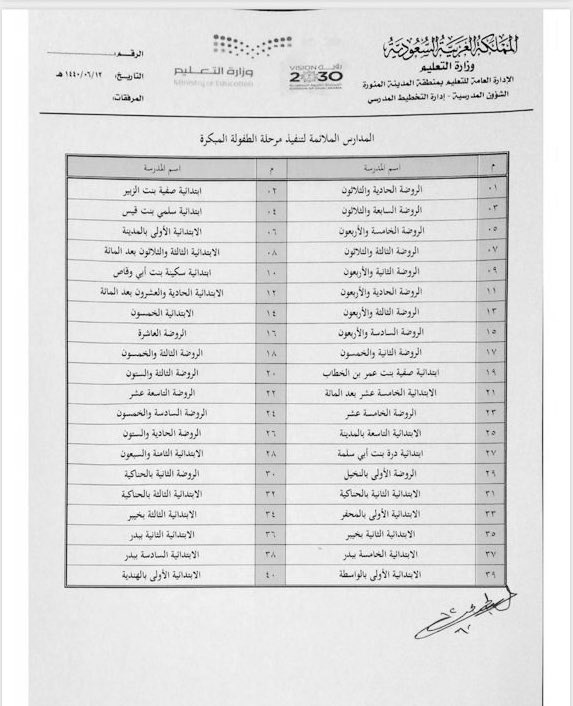 المملكة العربية السعودية
وزارة التعليم
الإدارة العامة للتعليم بمنطقة المدينة المنورة
الشؤون المدرسية - إدارة التخطيط المدرسي
VISION رؤية
2030
وزارة التعليم
Ministry of Education
الرقم:
التاريخ: ١٤٤٠/٠٦/١٢ هـ
المرفقات:
المدارس الملائمة لتنفيذ مرحلة الطفولة المبكرة
م اسم المدرسة م اسم المدرسة
٠١ الروضة الحادية والثلاثون ٠٢ ابتدائية صفية بنت الزبير
٠٣ الروضة السابعة والثلاثون ٠٤ ابتدائية سلمي بنت قيس
٠٥ الروضة الخامسة والأربعون ٠٦ الابتدائية الأولى بالمدينة
٠٧ الروضة الثالثة والثلاثون ٠٨ الابتدائية الثالثة والثلاثون بعد المائة
٠٩ الروضة الثانية والأربعون ١٠ ابتدائية سكينة بنت أبي وقاص
١١ الروضة الحادية والأربعون ١٢ الابتدائية الحادية والعشرون بعد المائة
١٣ الروضة الثالثة والأربعون ١٤ الابتدائية الخمسون
١٥ الروضة السادسة والأربعون ١٦ الروضة العاشرة
١٧ الروضة الثانية والخمسون ١٨ الروضة الثالثة والخمسون
١٩ ابتدائية صفية بنت عمر بن الخطاب ٢٠ الروضة الثالثة والستون
٢١ الابتدائية الخامسة عشر بعد المائة ٢٢ الروضة التاسعة عشر
٢٣ الروضة الخامسة عشر ٢٤ الروضة السادسة والخمسون
٢٥ الابتدائية التاسعة بالمدينة ٢٦ الروضة الحادية والستون
٢٧ ابتدائية درة بنت أبي سلمة ٢٨ الابتدائية الثامنة والسبعون
٢٩ الروضة الأولى بالنخيل ٣٠ الروضة الثانية بالحناكية
٣١ الابتدائية الثانية بالحناكية ٣٢ الابتدائية الثالثة بالحناكية
٣٣ الابتدائية الأولى بالمحفر ٣٤ الابتدائية الثالثة بخيبر
٣٥ الابتدائية الثانية بخيبر ٣٦ الابتدائية الثانية ببدر
٣٧ الابتدائية الخامسة ببدر ٣٨ الابتدائية السادسة ببدر
٣٩ الابتدائية الأولى بالواسطة ٤٠ الابتدائية الأولى بالهندية